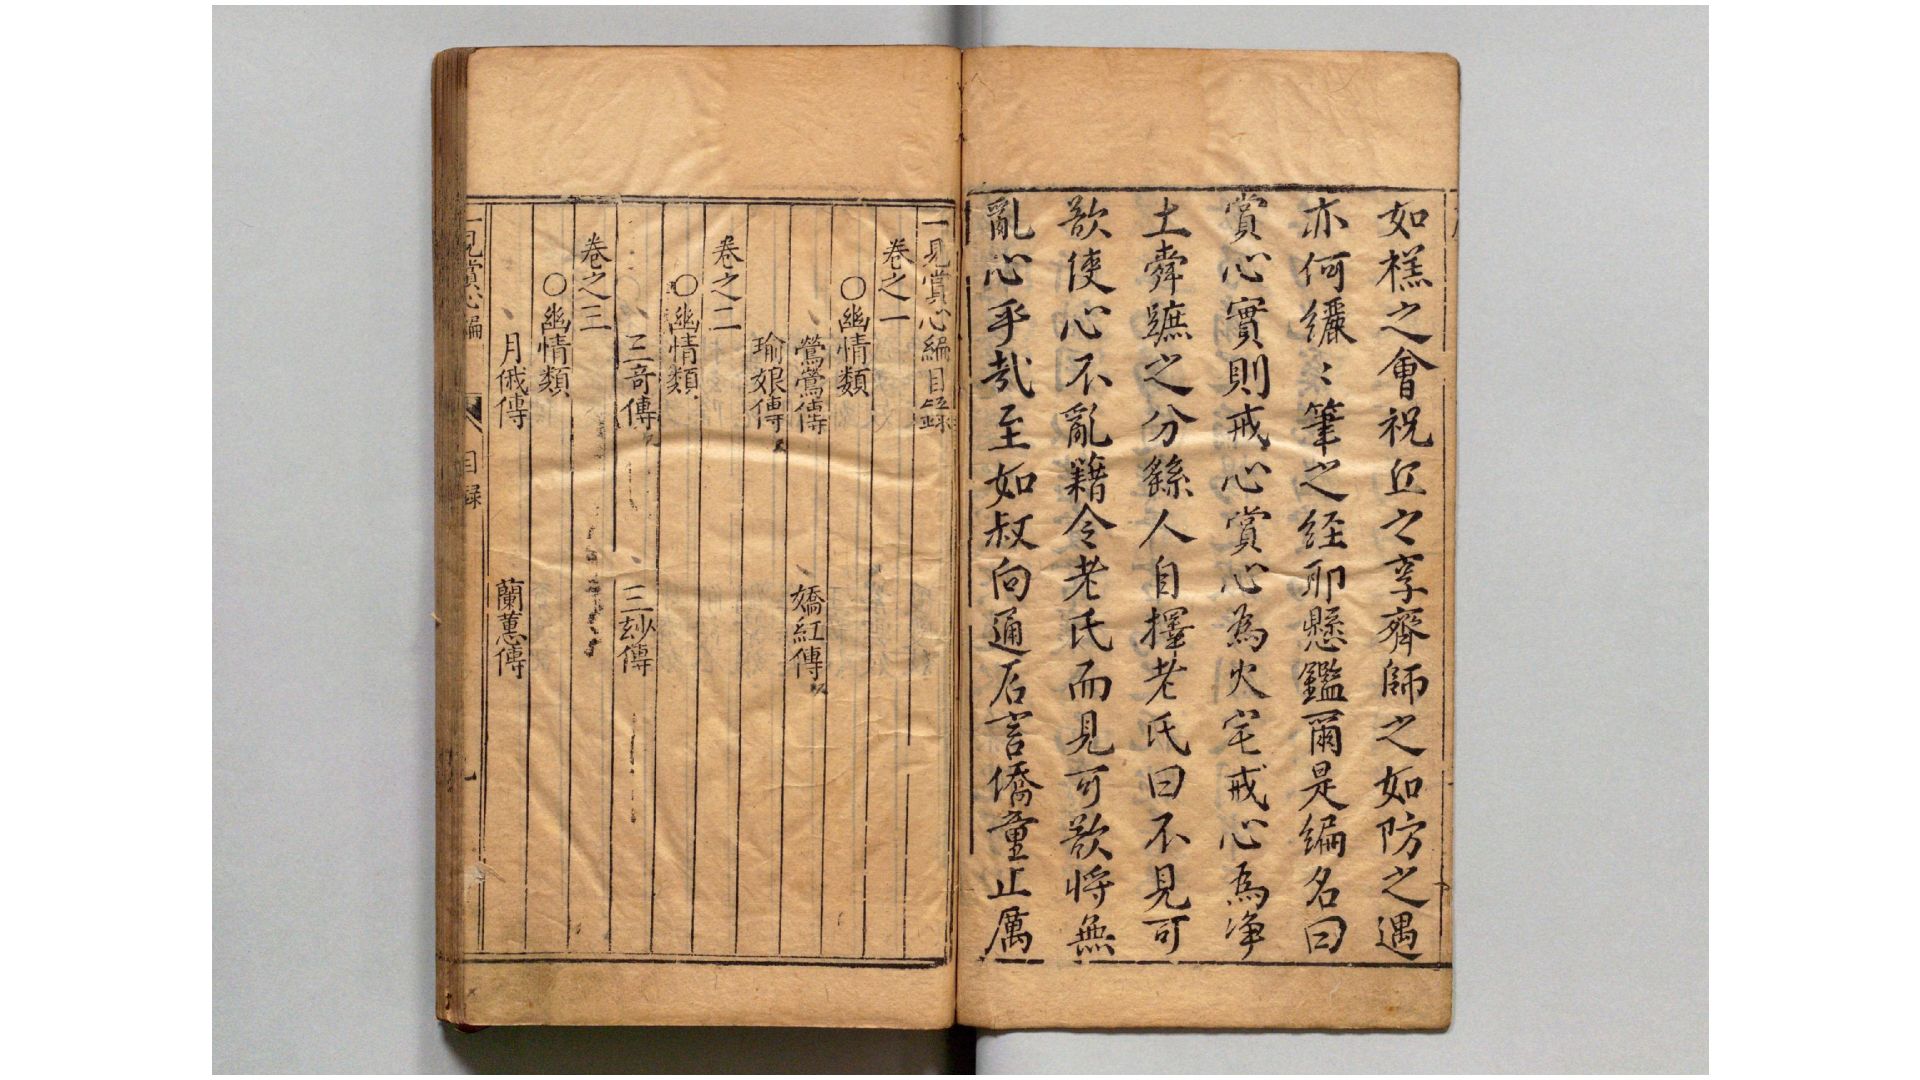 如禚之會祝丘之享齊師之如防之遇
亦何纚〻筆之經耶懸鑑爾是編名曰
賞心實則戒心賞心為火宅戒心為净
土舜蹠之分繇人自擇老氏曰不見可
欲使心不亂籍令老氏而見可欲将無
亂心乎哉至如叔向通后言僑童止厲
一見賞心編目錄
卷之一
○幽情類
鶯鶯傳 嬌紅傳
瑜娘傳
卷之二
○幽情類
三奇傳 三妙傳
卷之三
○幽情類
月俄傳 蘭蕙傳
一見賞心編 目錄